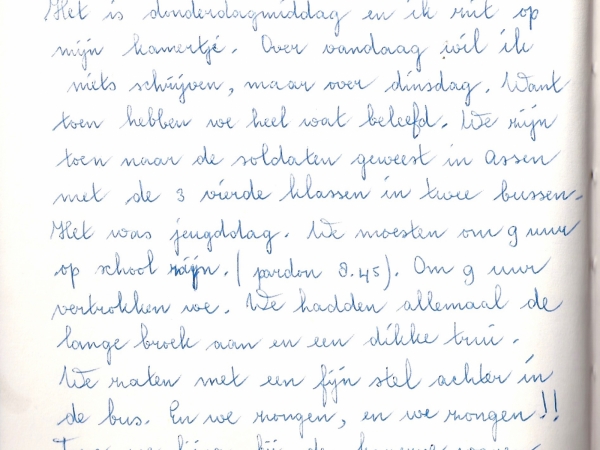 Het is donderdagmiddag en ik zit op
mijn kamertje. Over vandaag wil ik
niets schrijven, maar over dinsdag. Want
toen hebben we heel wat beleefd. We zijn
toen naar de soldaten geweest in Assen
met de 3 vierde klassen in twee bussen.
Het was jeugddag. We moesten om 9 uur
op school zijn. (pardon 8.45). Om 9 uur
vertrokken we. We hadden allemaal de
lange broek aan en een dikke trui.
We zaten met een fijn stel achter in
de bus. En we zongen, en we zongen!!
de